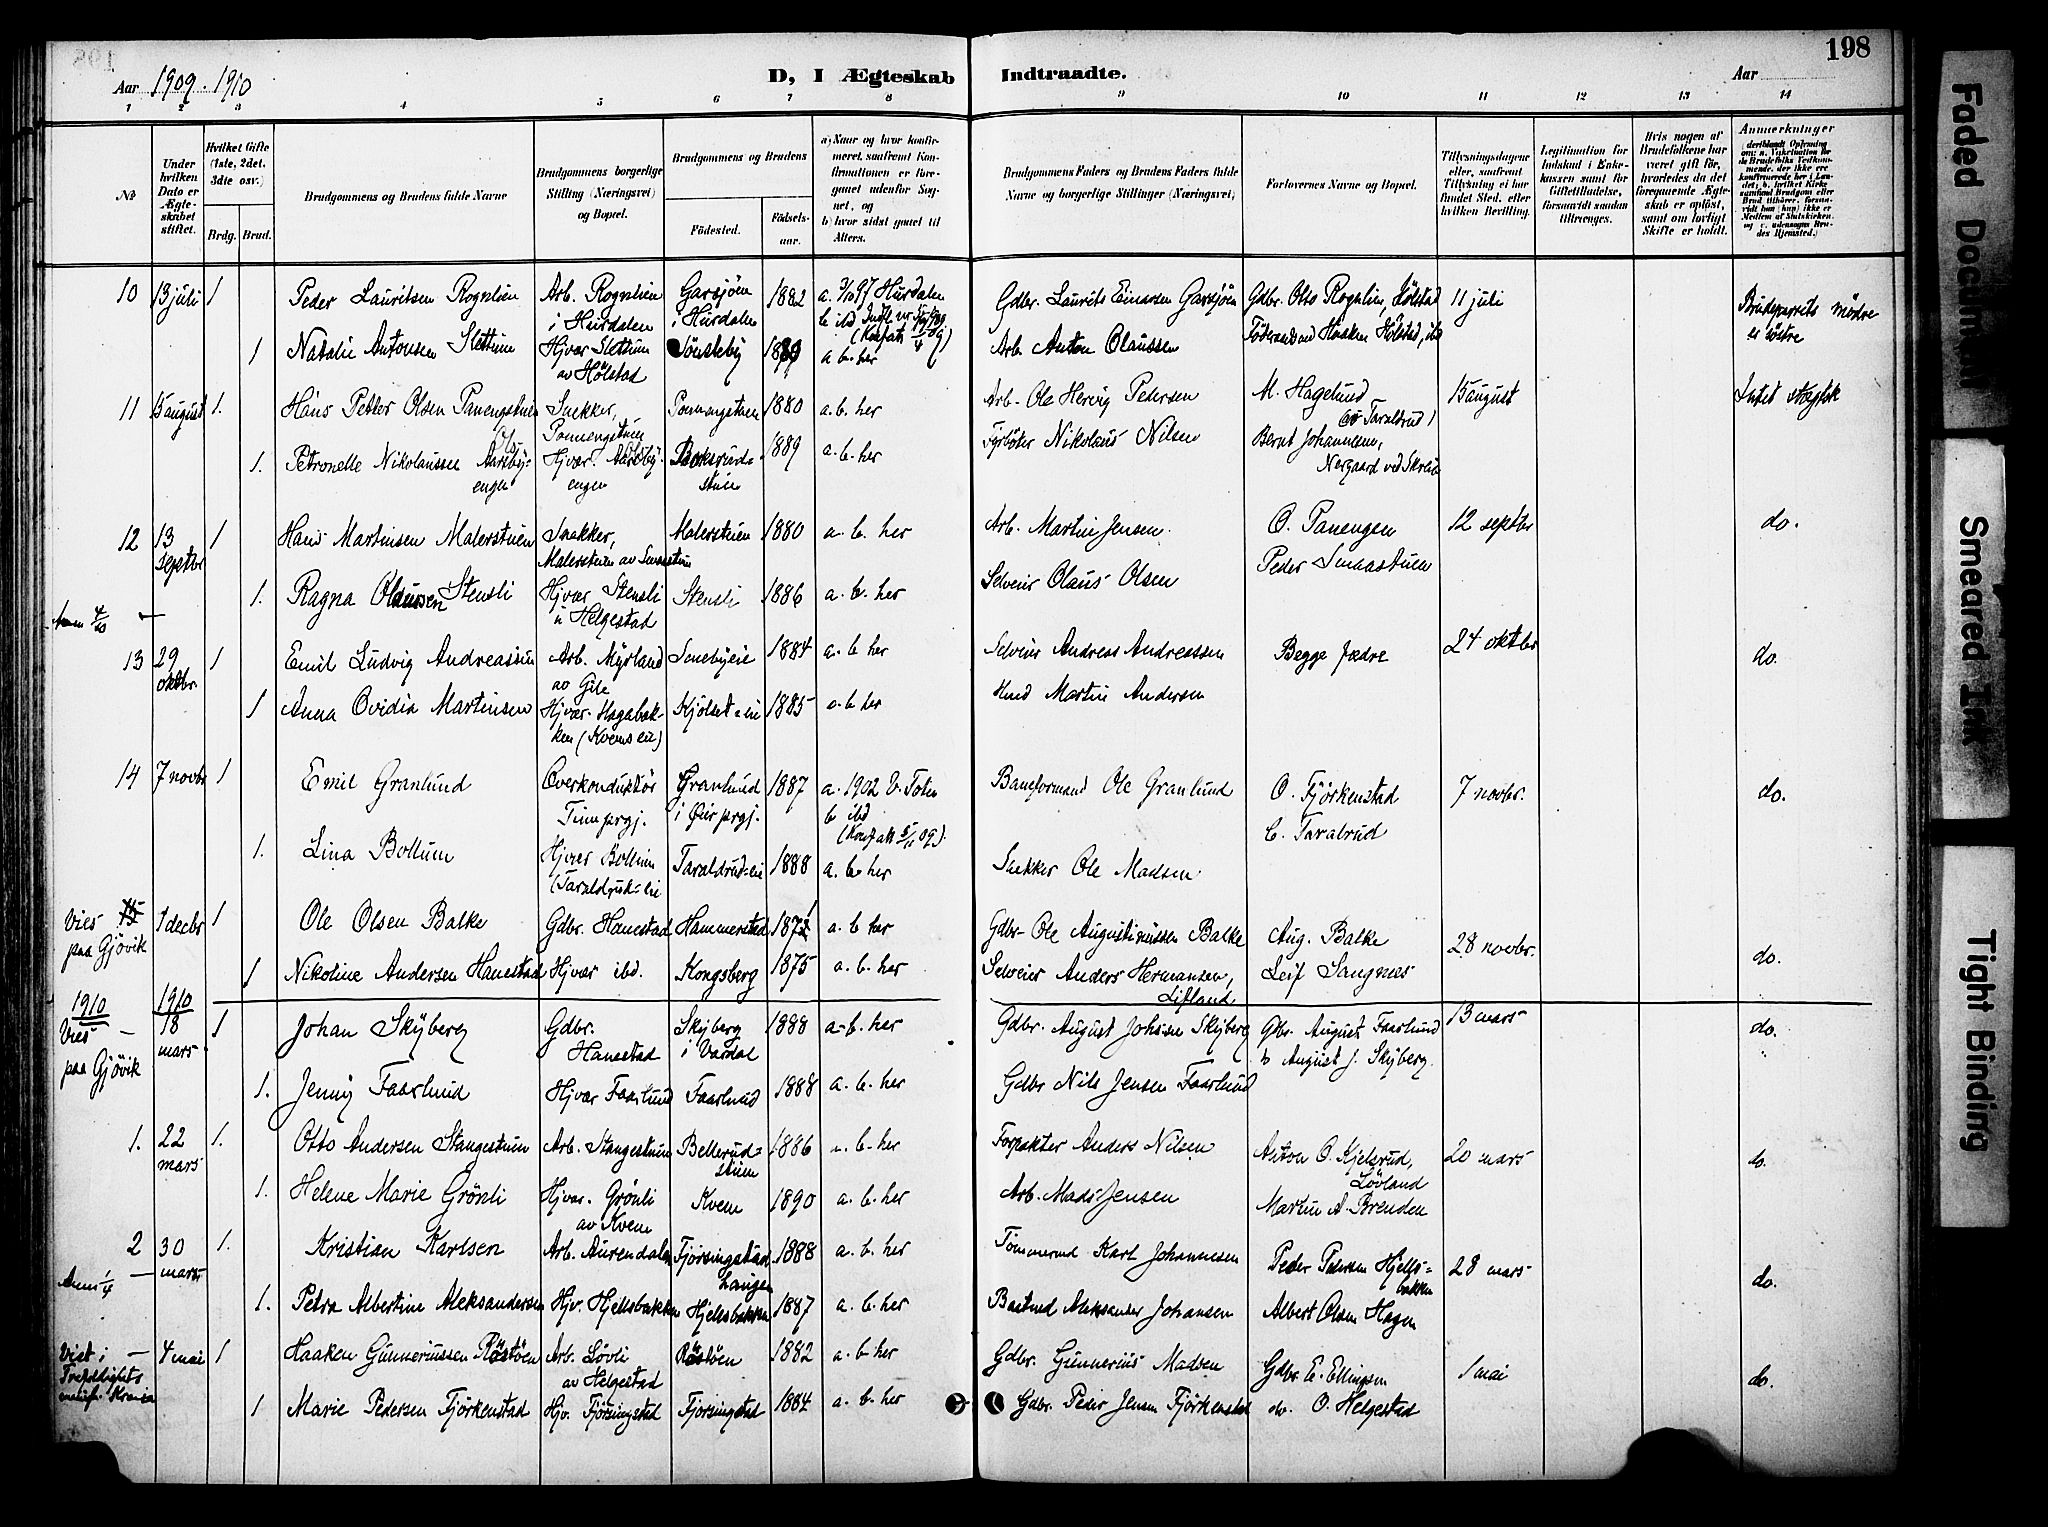 198
Aar 1909. 1910
D, I Ægteskab Indtraadte.
Aar
1 2 3 4 5 6 7 8 9 10 11 12 13 14
No
Under hvilken Dato er Ægteskabet stiftet.
Hvilket Gifte (1ste, 2det, 3die osv.)
Brdg. Brud.
Brudgommens og Brudens fulde Navne
Brudgommens borgerlige Stilling (Næringsvei) og Bopæl.
Brudgommens og Brudens
Fødested. Fødselsaar.
a) Naar og hvor konfirmeret, saafremt Konfirmationen er foregaaet udenfor Sognet, og
b) hvor sidst gaaet til Alters.
Brudgommens Faders og Brudens Faders fulde Navne og borgerlige Stillinger (Næringsvei)
Forlovernes Navne og Bopæl.
Tillysningsdagene eller, saafremt Tillysning ei har fundet Sted, efter hvilken Bevilling.
Legitimation for Indskud i Enkekassen samt for Giftetilladelse, forsaavidt saadan tiltrænges.
Hvis nogen af Brudefolkene har været gift før, hvorledes da det foregaaende Ægteskab er opløst, samt om lovligt Skifte er holdt.
Anmerkninger
10 13 juli 1 Peder Lauritsen Rognlien Arb. Rognlien i Hurdalen Garsjøen i Hurdalen 1882 a. 3/10 97 Hurdalen b ibd Gdbr. Laurits Einarsen Garsjøen Gdbr. Otto Rognlien, Hølstad 11 juli Brudeparrets mødre er søstre
1 Natalie Antonsen Slettum Hjvær Slettum av Hølstad Sønsteby a. b. her Arb. Anton Olaussen Haaken Hølstad, ibd
11 15 august 1. Hans Petter Olsen Panengstuen Snekker, Panengstuen 1880 a. b. her Arb. Ole Hervig Pedersen M. Hagelund 15 august Intet slegtsk
1. Petronelle Nikolaussen Aarsbyengen Hjvær. Aarsbyengen 1889 a. b. her Fyrbøter Nikolaus Nilsen Bernt Johannesen, Nergaard ved Skreia
12 13 septbr 1 Hans Martinsen Malerstuen Snekker, Malerstuen av Smestuen Malerstuen 1880 a. b. her Arb. Martin Jensen O. Panengen 12 septbr do.
1. Ragna Olaussen Stensli Hjvær Stensli u Helgestad Stensli 1886 a. b. her Selveier Olaus Olsen Peder Smaastuen
13 29 oktbr. 1 Emil Ludvig Andreassen Arb. Myrland av Gile Smebyeie 1884 a. b. her Selveier Andreas Andreassen Begge fædre 24 oktbr do.
1 Anna Ovidia Martinsen Hjvær. Hagabakken (Kvems eie) Kjølset-eie 1885 a. b. her Martin Andersen
14 7 novbr 1 Emil Granlund Overkonduktør Tinn prgj. Granlund i Øier prgj. 1887 a. 1902 V. Toten b ibd Baneformand Ole Granlund O. Fjørkenstad 7 novbr. do.
1. Lina Bollum Hjvær Bollum (Taraldrud-eie Taraldrud-eie 1888 a. b. her Snekker Ole Madsen C. Taralrud
Vies paa Gjøvik 1 decbr 1 Ole Olsen Balke Gdbr. Hanestad Hammerstad a. b her Gdbr Ole Augustinussen Balke Aug. Balke 28 novbr. do.
1 Nikoline Andersen Hanestad Hjvær ibd. Kongsberg 1875 a. b. her Selveier Anders Hermansen, Lifland Leif Sangnæs
1910 1910
Vies paa Gjøvik 18 mars 1 Johan Skyberg Gdbr. Hanestad Skyberg i Vardal 1888 a. b. her Gdbr. August Johsen Skyberg Gbr. August Faarlund 13 mars do.
1. Jenny Faarlund Hjvær Faarlund Faarlund 1888 a. b. her Gdbr Nils Jensen Faarlund August J. Skyberg.
1. 22 mars 1. Otto Andersen Stangestuen Arb. Stangestuen Bellerudstuen 1886 a. b. her Forpakter Anders Nilsen Anton O. Kjelsrud, Løvland 20 mars do.
1. Helene Marie Grønli Hjvær. Grønli av Kvem Kvem 1890 a. b. her Arb. Mads Jensen Martin A. Brenden
2 30 mars 1. Kristian Karlsen Arb. Aurendalen Fjørsingstad 1888 a. b. her Tømmermd Karl Johannesen Peder Pedersen Hjellsbakken 28 mars do.
1. Petra Albertine Aleksandersen Hjv. Hjellsbakken Hjellsbakken 1887 a. b. her Aleksander Johansen Albert Olsen Hagen
Viet i Trefoldighets 4 mai 1 Haaken Gunneriussen Røstøen Arb. Løvli av Helgestad Røstøen 1882 a. b her Gdbr. Gunnerius Madsen Gdbr. E. Ellingsen 1 mai do.
1 Marie Pedersen Fjørkenstad Hjv. Fjørsingstad Fjørsingstad 1884 a. b. her Gdbr. Peder Jensen Fjørkenstad do. O. Helgestad
Faded Document
Smeared Ink
Tight Binding